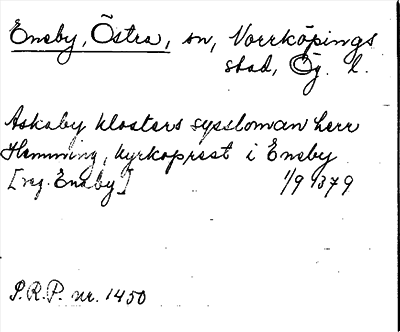 Eneby, Östra, sn, Norrköpings
stad, Ög. l.
Askaby klosters syssloman herr
Hemming, kyrkoprest i Eneby
[reg. Eneby] 1/9 1379
P.R.P. nr. 1450